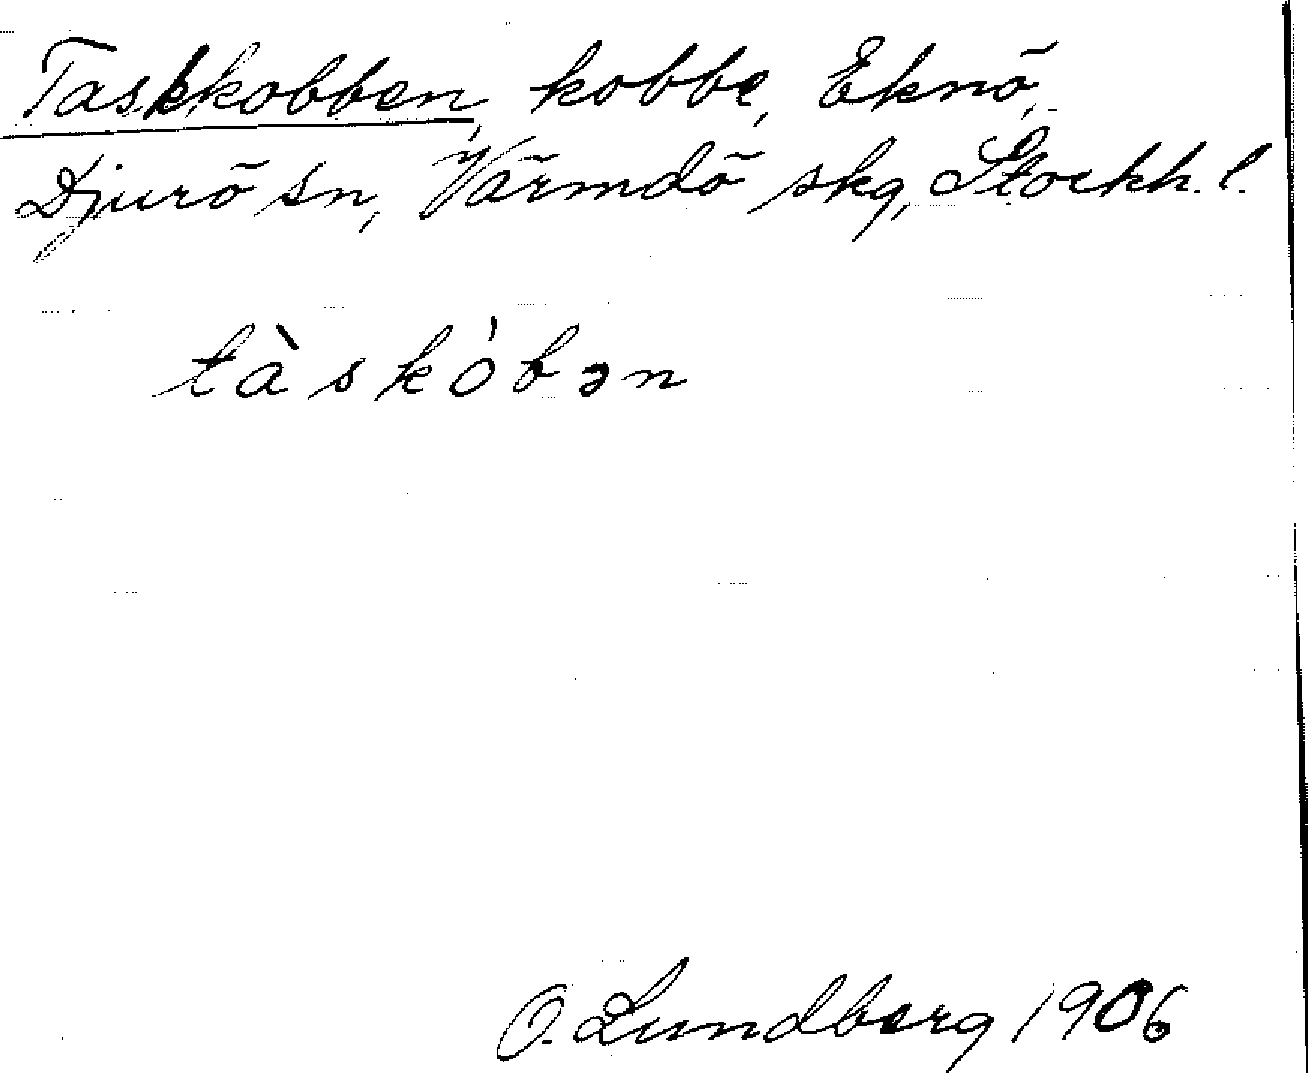 Taskkobben, kobbe, Eknö,
Djurö sn, Värmdö skg, Stockh. l.
tàskóbən
O. Lundberg 1906